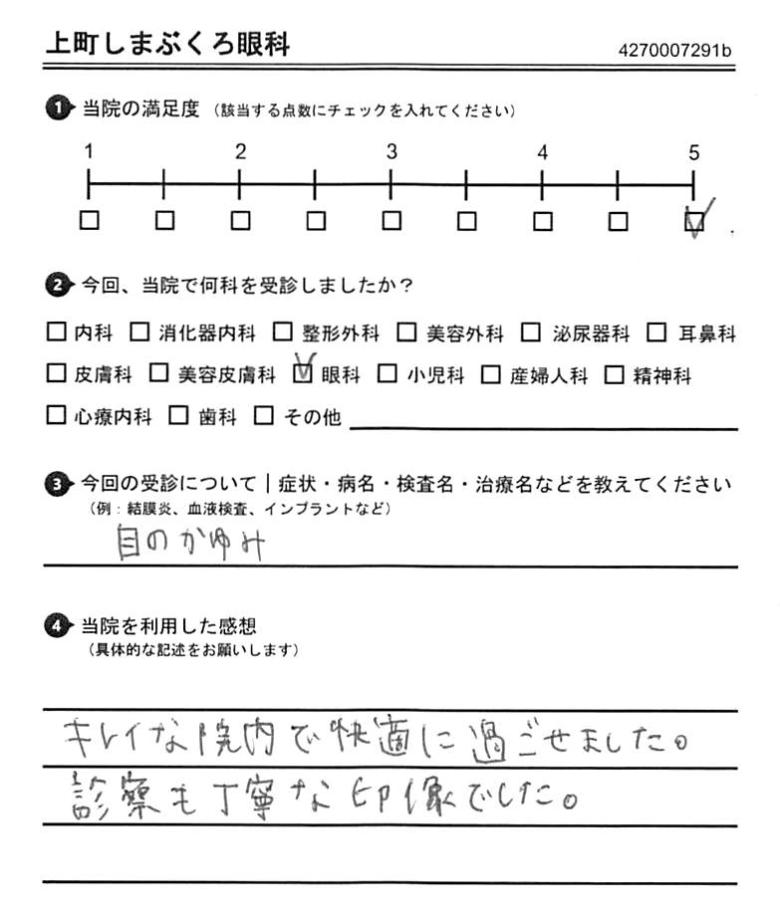 上町しまぶくろ眼科
4270007291b
1 当院の満足度 （該当する点数にチェックを入れてください）
1 2 3 4 5
2 今回、当院で何科を受診しましたか？
内科 消化器内科 整形外科 美容外科 泌尿器科 耳鼻科
皮膚科 美容皮膚科 眼科 小児科 産婦人科 精神科
心療内科 歯科 その他
3 今回の受診について｜症状・病名・検査名・治療名などを教えてください
（例：結膜炎、血液検査、インプラントなど）
目のかゆみ
4 当院を利用した感想
（具体的な記述をお願いします）
キレイな院内で快適に過ごせました。
診察も丁寧な印像でした。